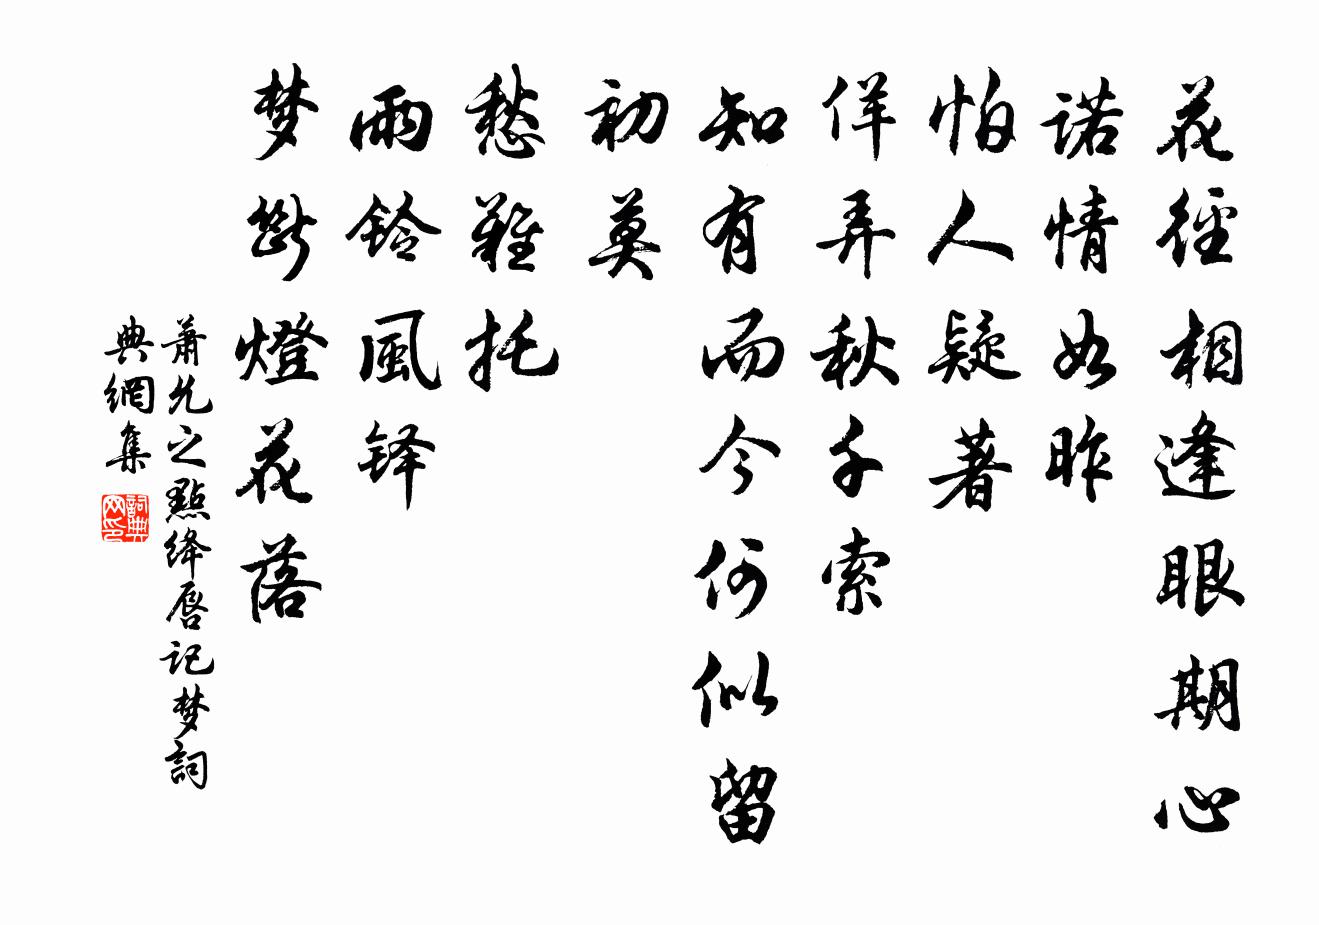 花徑相逢眼期心
諾情如昨
怕人疑著
佯弄秋千索
知有而今何似留
初莫
愁難托
雨鈴風铎
梦斷燈花落
蕭允之點绛唇记梦詞
典網集
詞典
网印